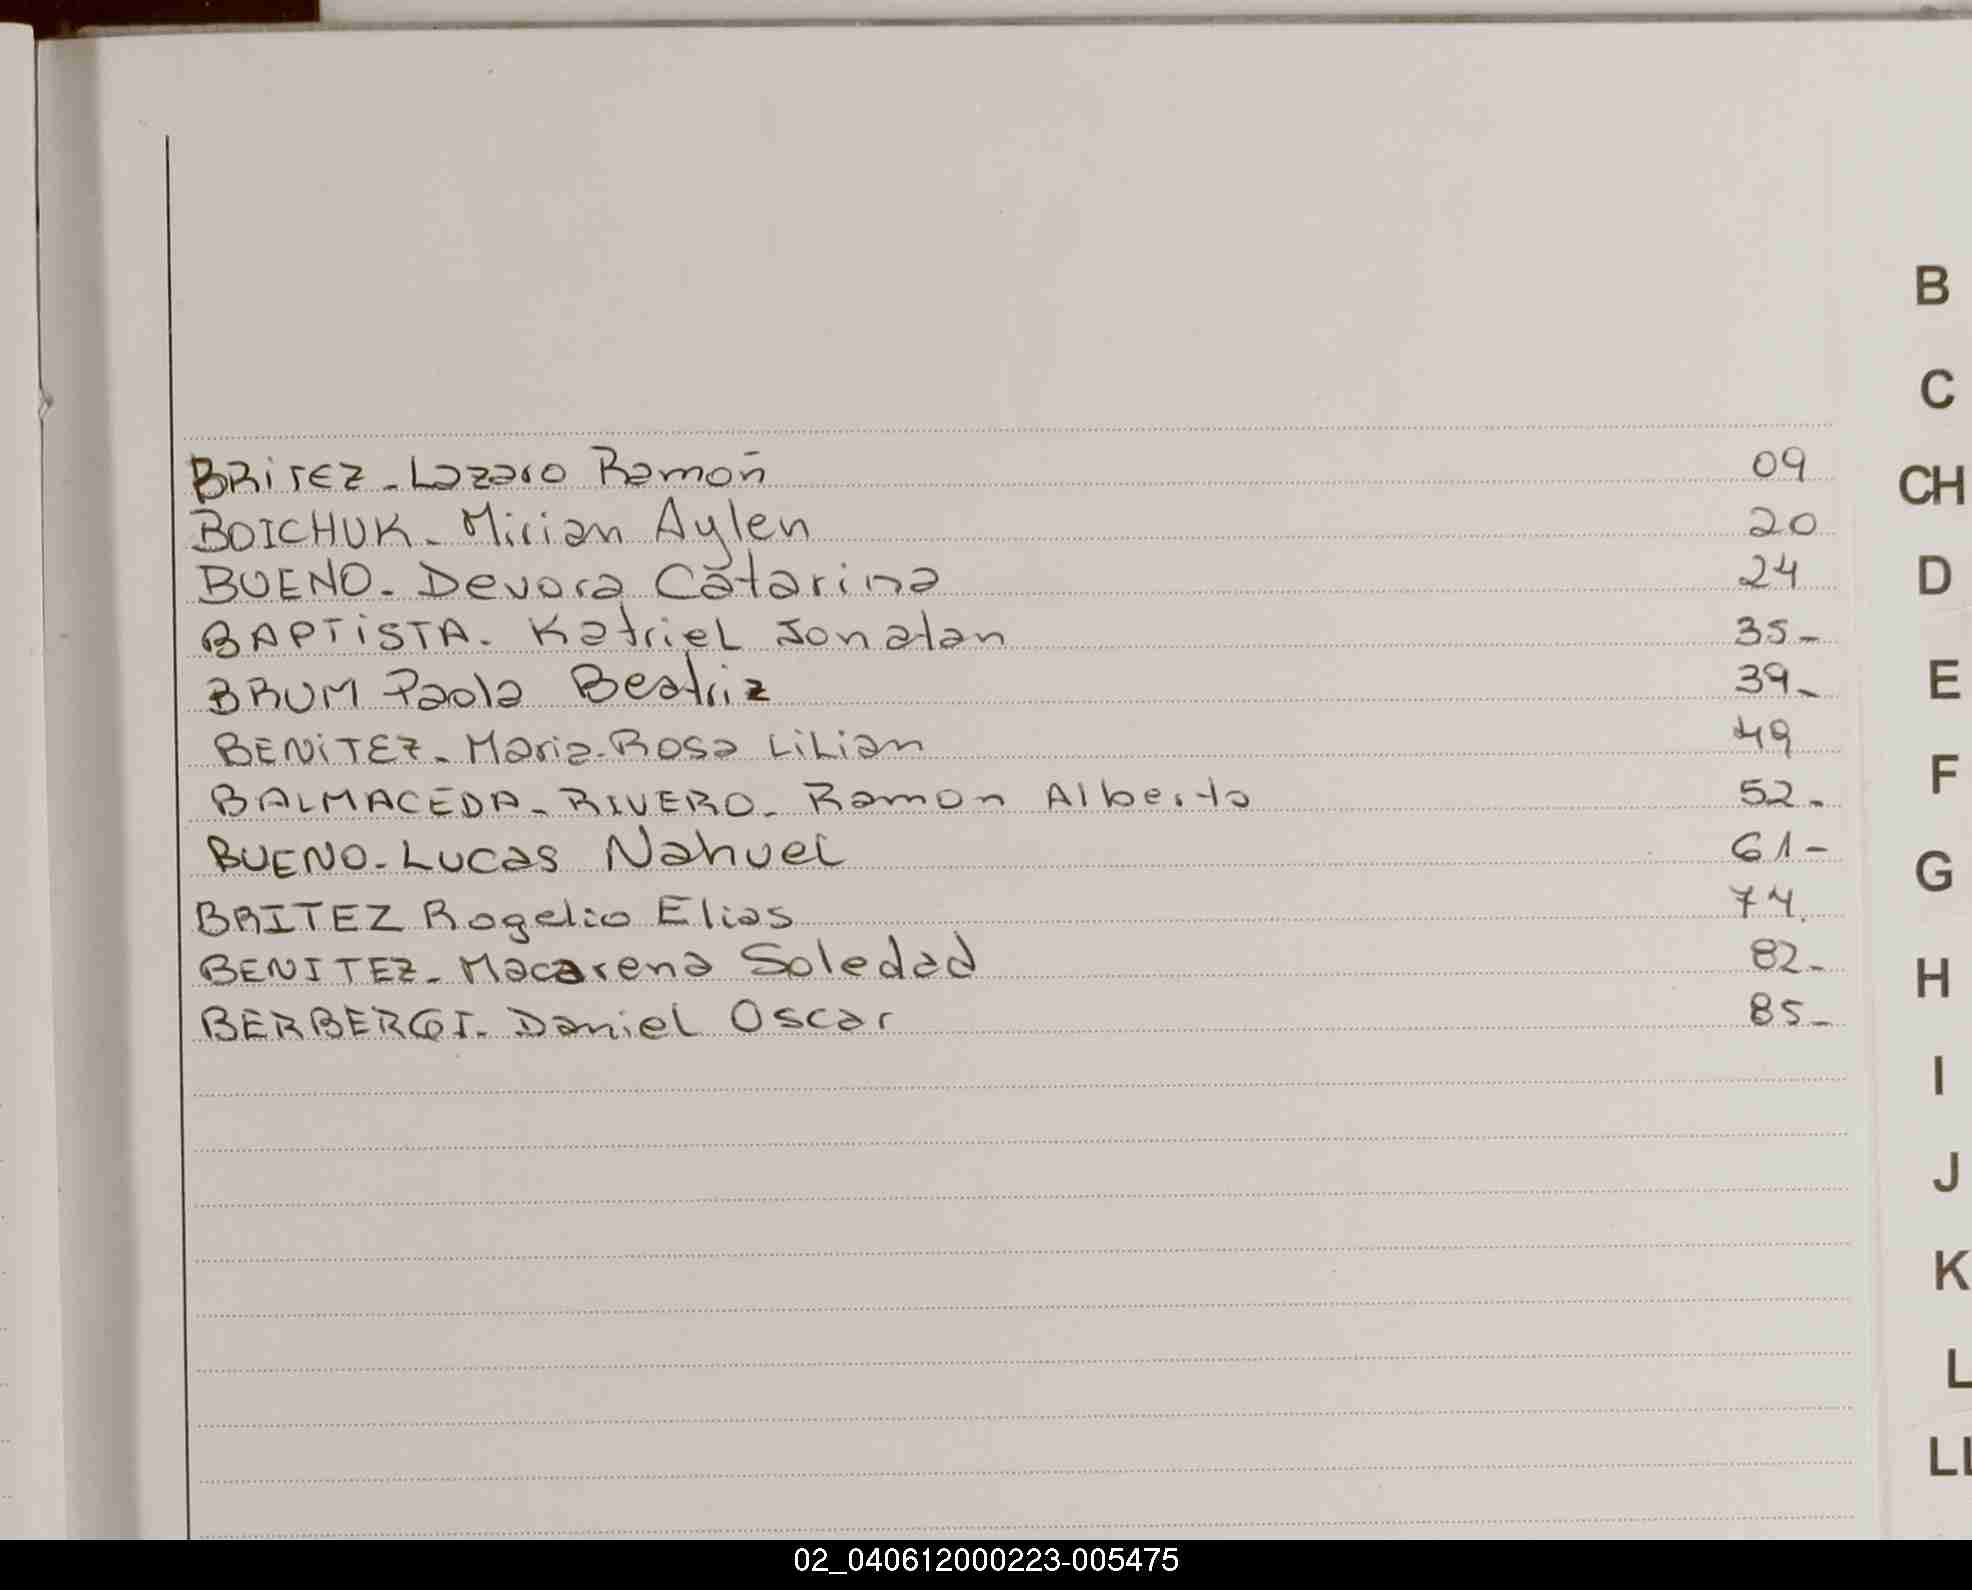 BRITEZ - Lazaro Ramón 09
BOICHUK - Mirian Aylen 20
BUENO - Devora Catarina 24
BAPTISTA - Katriel Jonatan 35-
BRUM Paola Beatriz 39-
BENITEZ - Maria Rosa Lilian 49
BALMACEDA - RIVERO - Ramon Alberto 52-
BUENO - Lucas Nahuel 61-
BRITEZ Rogelio Elias 74.
BENITEZ - Macarena Soledad 82-
BERBERGI - Daniel Oscar 85-
B
C
CH
D
E
F
G
H
I
J
K
L
LL
02_040612000223-005475